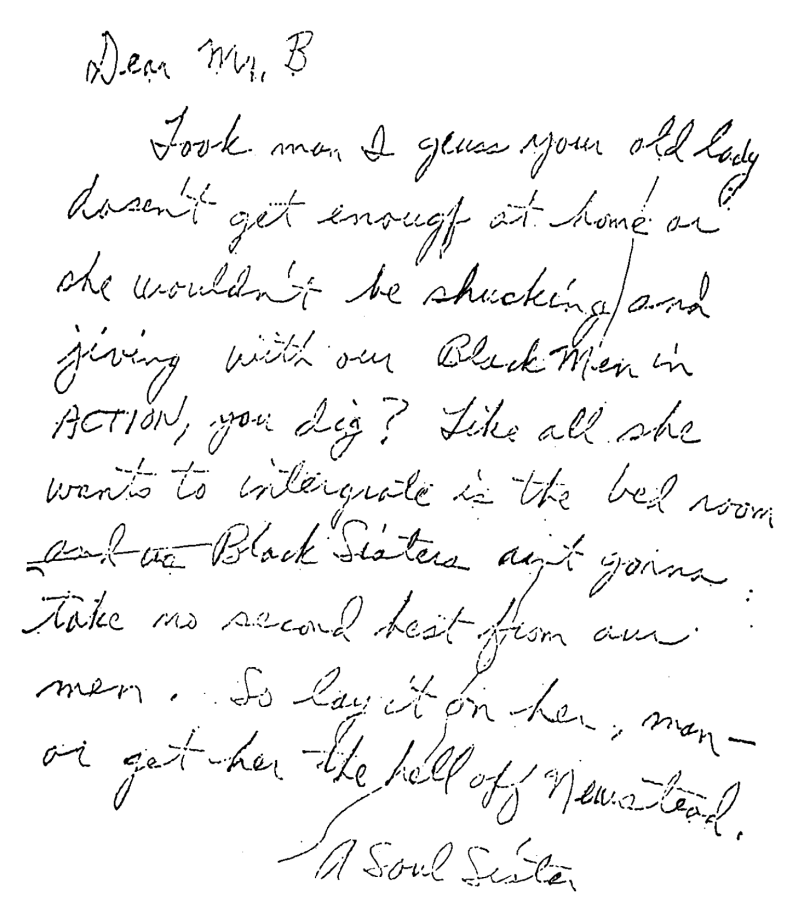 Dear Mr. B
Look man I geuss your old lady
dosen't get enougf at home or
she wouldn't be shucking and
jiving with our Black Men in
ACTION, you dig? Like all she
wants to intergrate is the bed room
and us Black Sisters ain't gonna
take no second best from our
men. So lay it on her, man —
or get her the hell off Newstead.
A Soul Sister